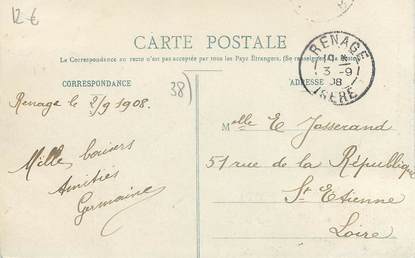 12 €
CARTE POSTALE
La Correspondance au recto n'est pas acceptée par tous les Pays Étrangers. (Se renseigner
CORRESPONDANCE
38)
ADRESSE
RENAGE
3 -9
08
ISERE
Renage le 2/9 1908.
Mille baisers
Amitiés
Germaine
Melle E Josserand
51 rue de la République
St Etienne
Loire